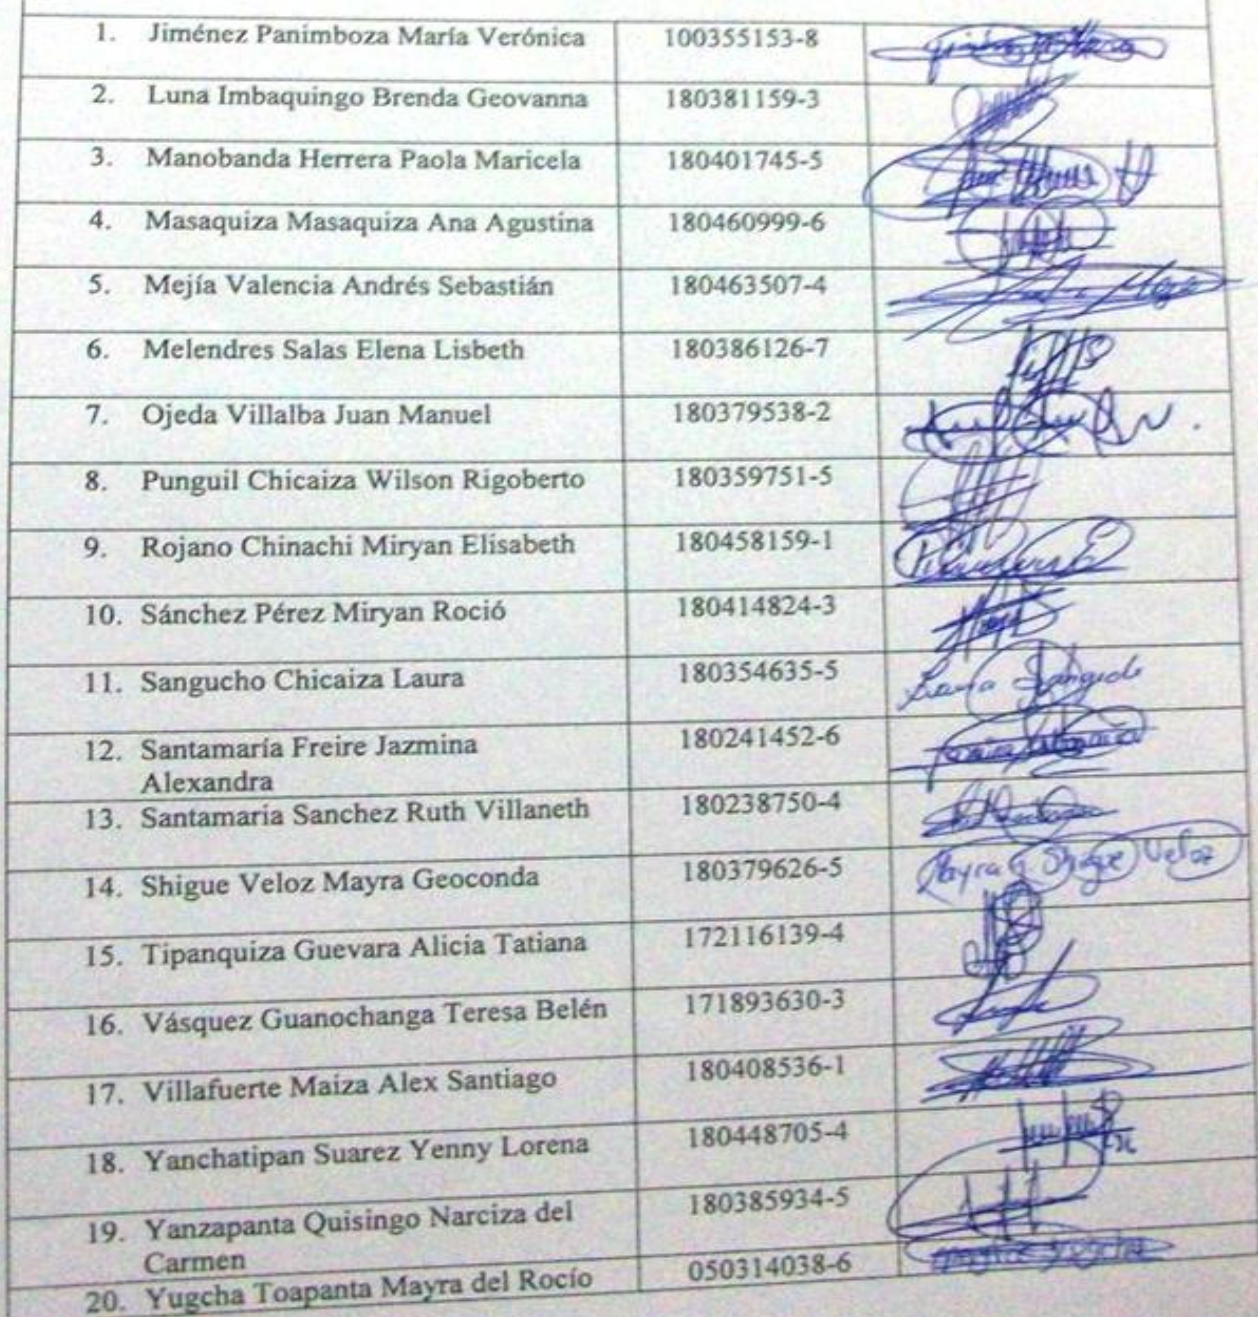 1. Jiménez Panimboza María Verónica 100355153-8
2. Luna Imbaquingo Brenda Geovanna 180381159-3
3. Manobanda Herrera Paola Maricela 180401745-5
4. Masaquiza Masaquiza Ana Agustina 180460999-6
5. Mejía Valencia Andrés Sebastián 180463507-4
6. Melendres Salas Elena Lisbeth 180386126-7
7. Ojeda Villalba Juan Manuel 180379538-2
8. Punguil Chicaiza Wilson Rigoberto 180359751-5
9. Rojano Chinachi Miryan Elisabeth 180458159-1
10. Sánchez Pérez Miryan Roció 180414824-3
11. Sangucho Chicaiza Laura 180354635-5
12. Santamaría Freire Jazmina 180241452-6
Alexandra
13. Santamaría Sanchez Ruth Villaneth 180238750-4
14. Shigue Veloz Mayra Geoconda 180379626-5 Mayra G Shigue Veloz
15. Tipanquiza Guevara Alicia Tatiana 172116139-4
16. Vásquez Guanochanga Teresa Belén 171893630-3
17. Villafuerte Maiza Alex Santiago 180408536-1
18. Yanchatipan Suarez Yenny Lorena 180448705-4
19. Yanzapanta Quisingo Narciza del 180385934-5
Carmen
20. Yugcha Toapanta Mayra del Rocío 050314038-6